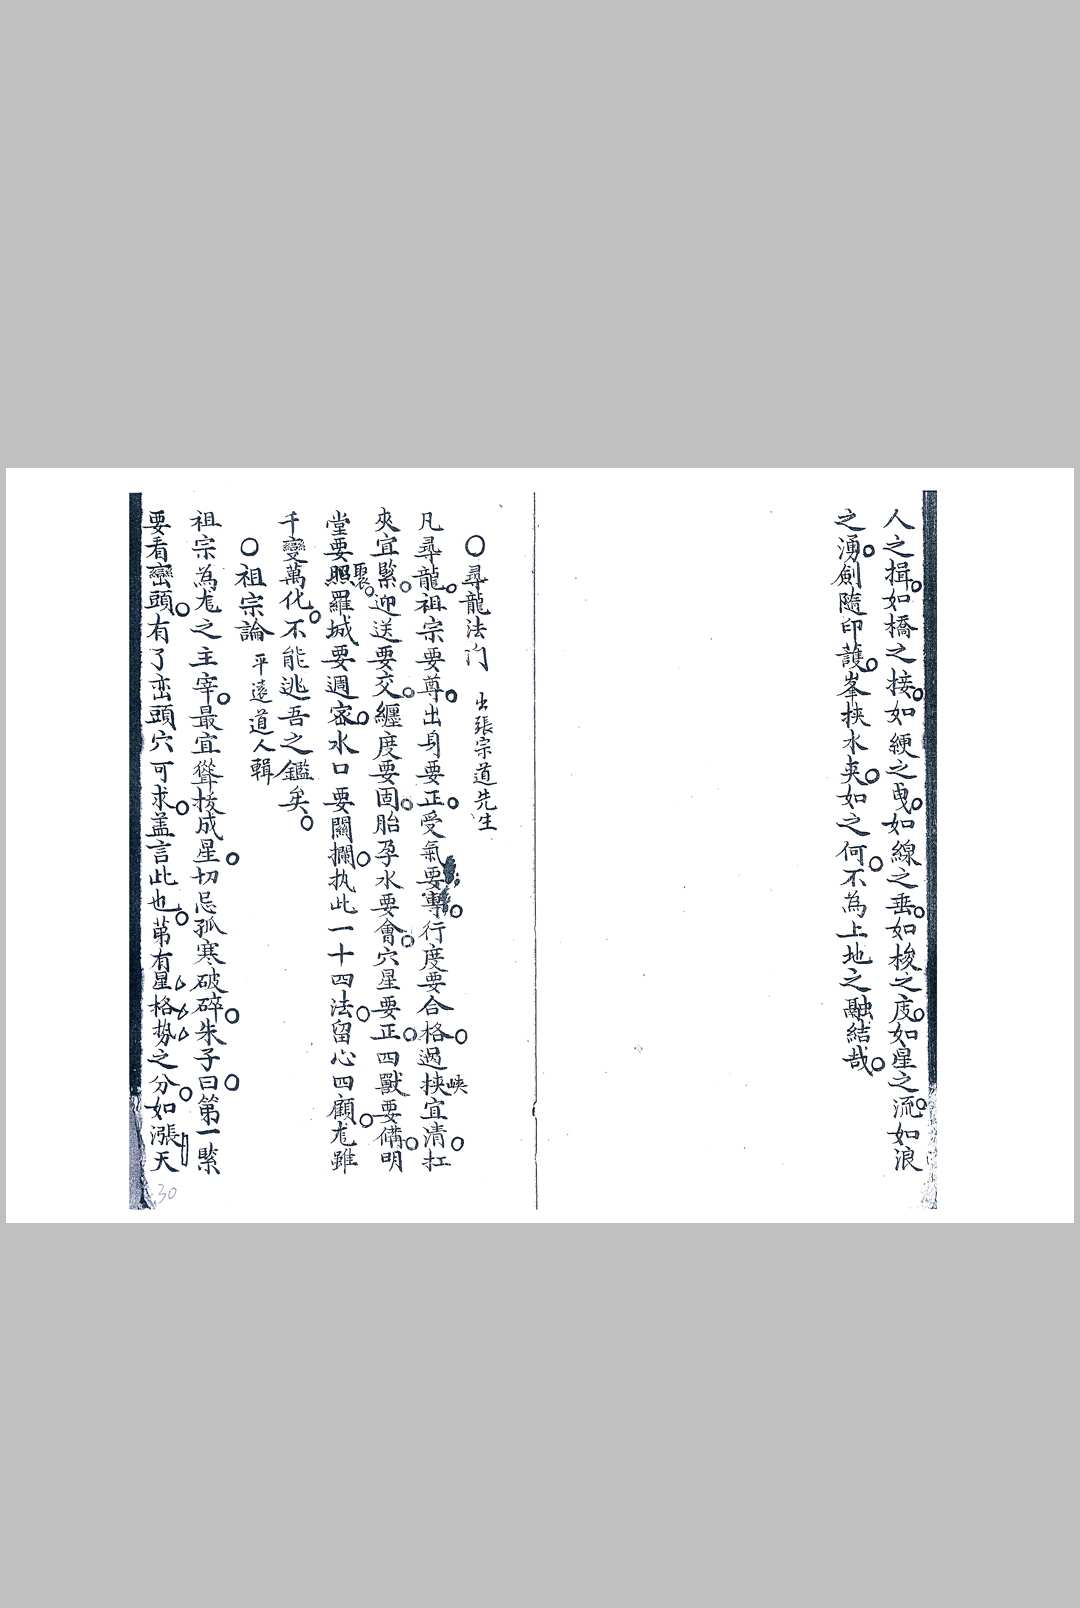 人之揖如橋之接如綆之曳如線之垂如梭之度如星之流如浪
之湧劍隨印護峯挾水夾如之何不為上地之融結哉
〇尋龍法门 出張宗道先生
凡尋龍祖宗要尊出身要正受氣要專行度要合格過挾峽宜清扛
夾宜緊迎送要交纏度要固胎孕水要會穴星要正四獸要備明
堂要照聚羅城要週密水口要關攔执此一十四法留心四顧龙雖
千變萬化不能逃吾之鑑矣
〇祖宗論 平遠道人輯
祖宗為龙之主宰最宜聳拔成星切忌孤寒破碎朱子曰第一緊
要看巒頭有了峦頭穴可求盖言此也苐有星格势之分如漲天
30